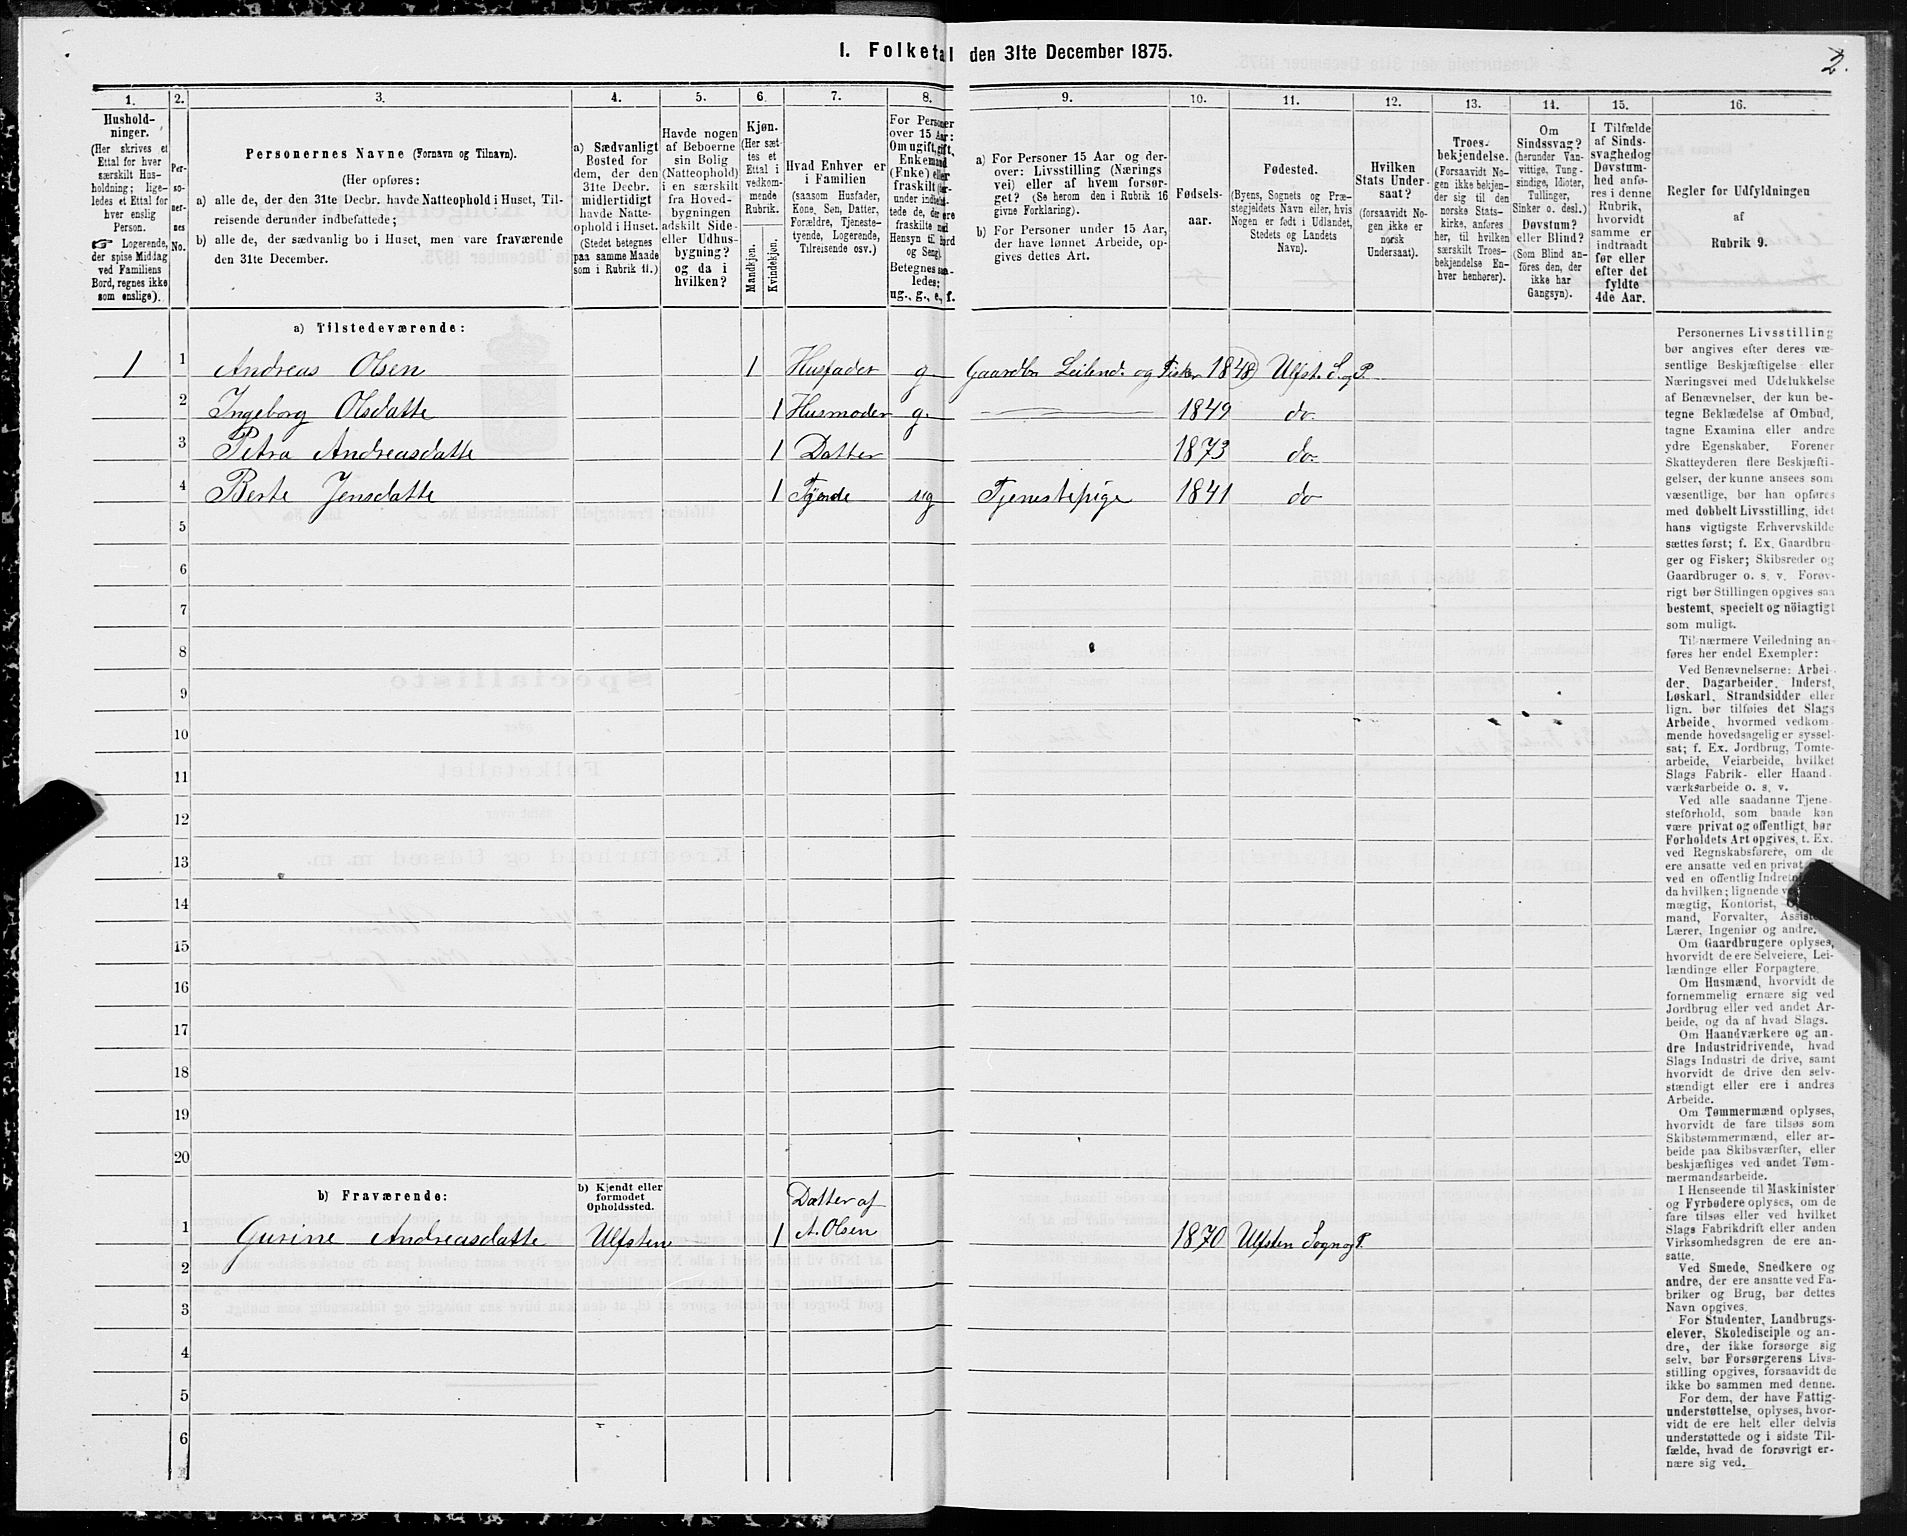 I. Folketal den 31te December 1875.
2.
1.
2.
3.
4.
5.
6.
7.
8.
9.
10.
11.
12.
13.
14.
15.
16.
Hushold-
ninger.
(Her skrives et
Ettal for hver
særskilt Hus-
holdning; lige-
ledes et Ettal for
hver enslig
Person.
☞ Logerende,
der spise Middag
ved Familiens
Bord, regnes ikke
som enslige).
Per-
so-
ner-
nes
No.
Personernes Navne (Fornavn og Tilnavn).
(Her opføres:
a) alle de, der den 31te Decbr. havde Natteophold i Huset, Til-
reisende derunder indbefattede;
b) alle de, der sædvanlig bo i Huset, men vare fraværende
den 31te December.
a) Sædvanligt
Bosted for
dem, der den
31te Decbr.
midlertidigt
havde Natte-
ophold i Huset.
(Stedet betegnes
paa samme Maade
som i Rubrik 11.)
Havde nogen
af Beboerne
sin Bolig
(Natteophold)
i en særskilt
fra Hoved-
bygningen
adskilt Side-
eller Udhus-
bygning?
og da i
hvilken?
Kjøn.
(Her sæt-
tes et
Ettal i
vedkom-
mende
Rubrik.
Mandkjøn.
Kvindekjøn.
Hvad Enhver er
i Familien
(saasom Husfader,
Kone, Søn, Datter,
Forældre, Tjeneste-
tyende, Logerende,
Tilreisende osv.)
For Personer
over 15 Aar:
Om ugift, gift,
Enkemand
(Enke) eller
fraskilt
Betegnes saa-
ledes:
ug., g., e., f.
a) For Personer 15 Aar og der-
over: Livsstilling (Nærings
vei) eller af hvem forsør-
get? (Se herom den i Rubrik 16
givne Forklaring).
b) For Personer under 15 Aar,
der have lønnet Arbeide, op-
gives dettes Art.
Fødsels-
aar.
Fødested.
(Byens, Sognets og Præ-
stegjeldets Navn eller, hvis
Nogen er født i Udlandet,
Stedets og Landets
Navn).
Hvilken
Stats Under-
saat?
(forsaavidt No-
gen ikke er
norsk
Undersaat).
Troes-
bekjendelse.
(Forsaavidt No-
gen ikke bekjen-
der sig til den
norske Stats-
kirke, anføres
her, til hvilken
særskilt Troes-
bekjendelse En-
hver henhører).
Om
Sindssvag?
(herunder Van-
vittige, Tung-
sindige, Idioter,
Tullinger,
Sinker o. desl.)
Døvstum?
eller Blind?
(Som Blind an-
føres den, der
ikke har
Gangsyn).
I Tilfælde
af Sinds-
svaghed og
Døvstum-
hed anfø-
res i denne
Rubrik,
hvorvidt
samme er
indtraadt
før eller
efter det
fyldte
4de Aar.
Regler for Udfyldningen
af
Rubrik 9.
a) Tilstedeværende:
1 1 Andreas Olsen 1 Husfader g. Gaardbr Leilend. og Fisker 1848 Ulfst. S. og P.
2 Ingeborg Olsdatte 1 Husmoder g. 1849 do.
3 Petra Andreasdatte 1 Datter 1873 do.
4 Berte Jensdatte 1 Tyende ug Tjenestepige 1841 do
5
6
7
8
9
10
11
12
13
14
15
16
17
18
19
20
b) Fraværende:
b) Kjendt eller
formodet
Opholdssted.
Datter af
1 Gurine Andreasdatte Ulfsten 1 A. Olsen 1870 Ulfsten Sogn og P.
2
3
4
5
6
Personernes Livsstilling
bør angives efter deres væ-
sentlige Beskjæftigelse eller
Næringsvei med Udelukkelse
af Benævnelser, der kun be-
tegne Beklædelse af Ombud,
tagne Examina eller andre
ydre Egenskaber. Forener
Skatteyderen flere Beskjæfti-
gelser, der kunne ansees som
væsentlige, bør han opføres
med dobbelt Livsstilling, idet
hans vigtigste Erhvervskilde
sættes først; f. Ex. Gaardbru-
ger og Fisker; Skibsreder og
Gaardbruger o. s. v. Forøv-
rigt bør Stillingen opgives saa
bestemt, specielt og nöiagtigt
som muligt.
Til nærmere Veiledning an-
føres her endel Exempler:
Ved Benævnelserne: Arbei-
der, Dagarbeider, Inderst,
Løskarl, Strandsidder eller
lign. bør tilføies det Slags
Arbeide, hvormed vedkom-
mende hovedsagelig er syssel-
sat; f. Ex. Jordbrug, Tomte-
arbeide, Veiarbeide, hvilket
Slags Fabrik- eller Haand-
værksarbeide o. s. v.
Ved alle saadanne Tjene-
steforhold, som baade kan
være privat og offentligt, bør
Forholdets Art opgives, t. Ex.
ved Regnskabsførere, om de
ere ansatte ved en privat
ved en offentlig
da hvilken; lignende
mægtig, Kontorist,
mand, Forvalter,
Lærer, Ingeniør og andre.
Om Gaardbrugere oplyses,
hvorvidt de ere Selveiere, Lei-
lændinge eller Forpagtere.
Om Husmænd, hvorvidt de
fornemmelig ernære sig ved
Jordbrug eller ved andet Ar-
beide, og da af hvad Slags.
Om Haandværkere og an-
dre Industridrivende, hvad
Slags Industri de drive, samt
hvorvidt de drive den selv-
stændigt eller ere i andres
Arbeide.
Om Tømmermænd oplyses,
hvorvidt de fare tilsøs som
Skibstømmermænd, eller ar-
beide paa Skibsværfter, eller
beskjæftiges ved andet Tøm-
mermandsarbeide.
I Henseende til Maskinister
og Fyrbødere oplyses, om de
fare tilsøs eller ved hvilket
Slags Fabrikdrift eller anden
Virksomhedsgren de ere an-
satte.
Ved Smede, Snedkere og
andre, der ere ansatte ved Fa-
briker og Brug, bør dettes
Navn opgives.
For Studenter, Landbrugs-
elever, Skoledisciple og an-
dre, der ikke forsørge sig
selv, bør Forsørgerens Livs-
stilling opgives, forsaavidt de
ikke bo sammen med denne.
For dem, der have Fattig-
understøttelse, oplyses, hvor-
vidt de ere helt eller delvis
understøttede og i sidste Til-
fælde, hvad de forøvrigt er-
nære sig ved.